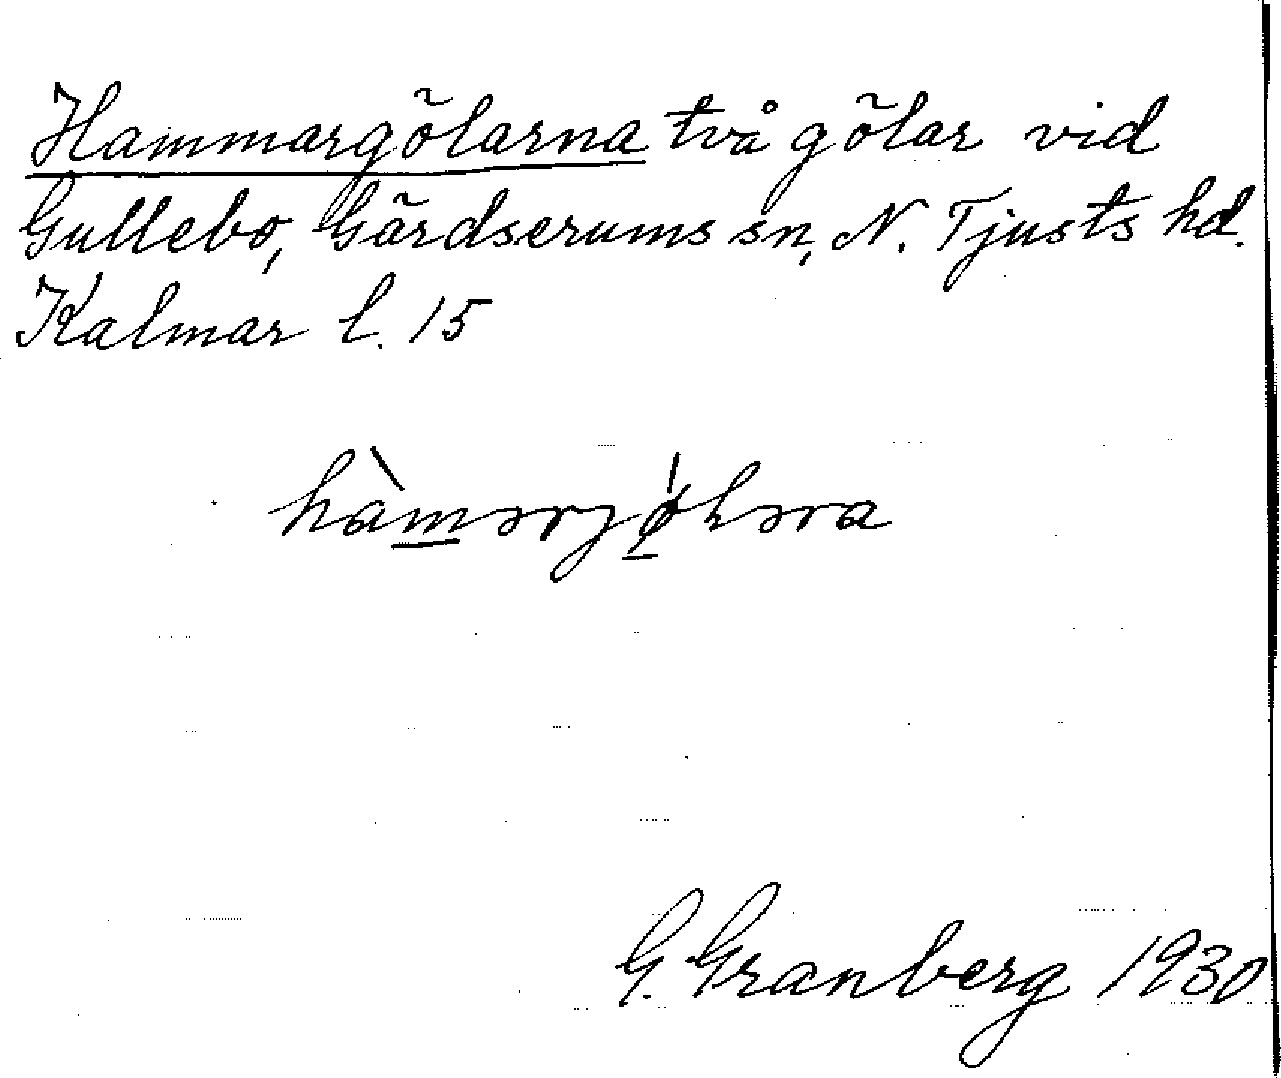 Hammargölarna två gölar vid
Gullebo, Gärdserums sn, N. Tjusts hd.
Kalmar l. 15
hàmərjøləra
G. Granberg 1930